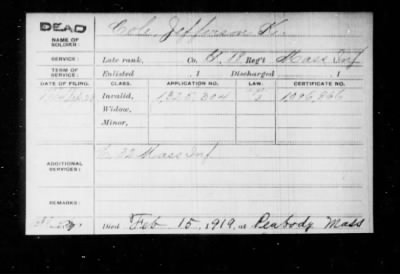 DEAD
NAME OF SOLDIER:
Cole, Jefferson K.
SERVICE:
Late rank, Co. H, 18 Reg't Mass Inf
TERM OF SERVICE:
Enlisted , 1 Discharged , 1
DATE OF FILING. CLASS. APPLICATION NO. LAW. CERTIFICATE NO.
Invalid, 1,325,304
Widow,
Minor,
ADDITIONAL SERVICES:
32 Mass Inf
REMARKS:
Died Feb 15, 1919, at Peabody Mass